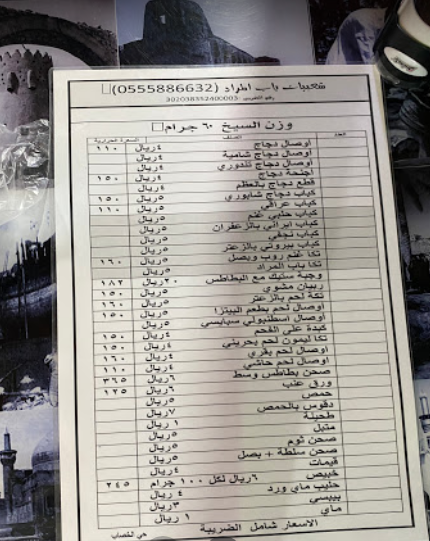 شعبيات باب المراد (0555886632)
رقم الضريبي 302038352400003
وزن السيخ ٦٠ جرام
العدد الصنف السعرة الحرارية
اوصال دجاج ٤ ريال ١١٠
اوصال دجاج شامية ٤ ريال
اوصال دجاج تندوري ٤ ريال
اجنحة دجاج ٤ ريال ١٥٠
قطع دجاج بالعظم ٤ ريال
كباب دجاج شابوري ٥ ريال ١٥٠
كباب عراقي ٥ ريال ١١٠
كباب حلبي غنم ٥ ريال
كباب ايراني بالزعفران ٥ ريال
كباب نجفي ٥ ريال
كباب بيروتي بالزعتر ٥ ريال
تكا غنم روب وبصل ٥ ريال ١٦٠
تكا باب المراد ٥ ريال
وجبة ستيك مع البطاطس ٢٠ ريال ١٨٢
ربيان مشوي ٥ ريال ١٥٠
تكة لحم بالزعتر ٥ ريال ١٦٠
اوصال لحم بطعم البيتزا ٥ ريال ١٥٠
اوصال اسطنبولي سبايسي ٥ ريال
كبدة على الفحم ٤ ريال ١٥٠
تكا ليمون لحم بحريني ٤ ريال ١٥٠
اوصال لحم بقري ٤ ريال ١٦٠
اوصال لحم حاشي ٤ ريال ١١٠
صحن بطاطس وسط ٦ ريال ٣٦٥
ورق عنب ٦ ريال ١٢٥
حمص ٥ ريال
دقوس بالحمص ٧ ريال
طحينة ١ ريال
متبل ٥ ريال
صحن ثوم ٥ ريال
صحن سلطة + بصل ٥ ريال
قيمات ٤ ريال
خبيص ٦ ريال لكل ١٠٠ جرام ٢٤٥
حليب ماي ورد ٤ ريال
بيبسي ٣ ريال
ماي ١ ريال
الاسعار شامل الضريبة